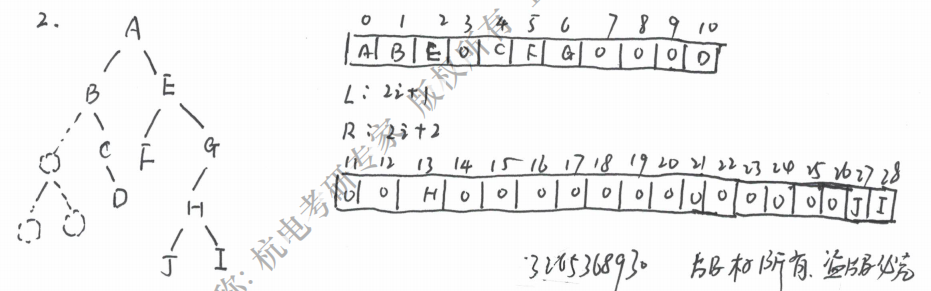 2.
A
B E
C F G
D H
J I
0 1 2 3 4 5 6 7 8 9 10
A B E 0 C F G 0 0 0 D
L: 2i+1
R: 2i+2
11 12 13 14 15 16 17 18 19 20 21 22 23 24 25 26 27 28
0 0 H 0 0 0 0 0 0 0 0 0 0 0 0 0 J I
称: 杭电考研专家 版权所有
3265368930 版权所有 盗版必究